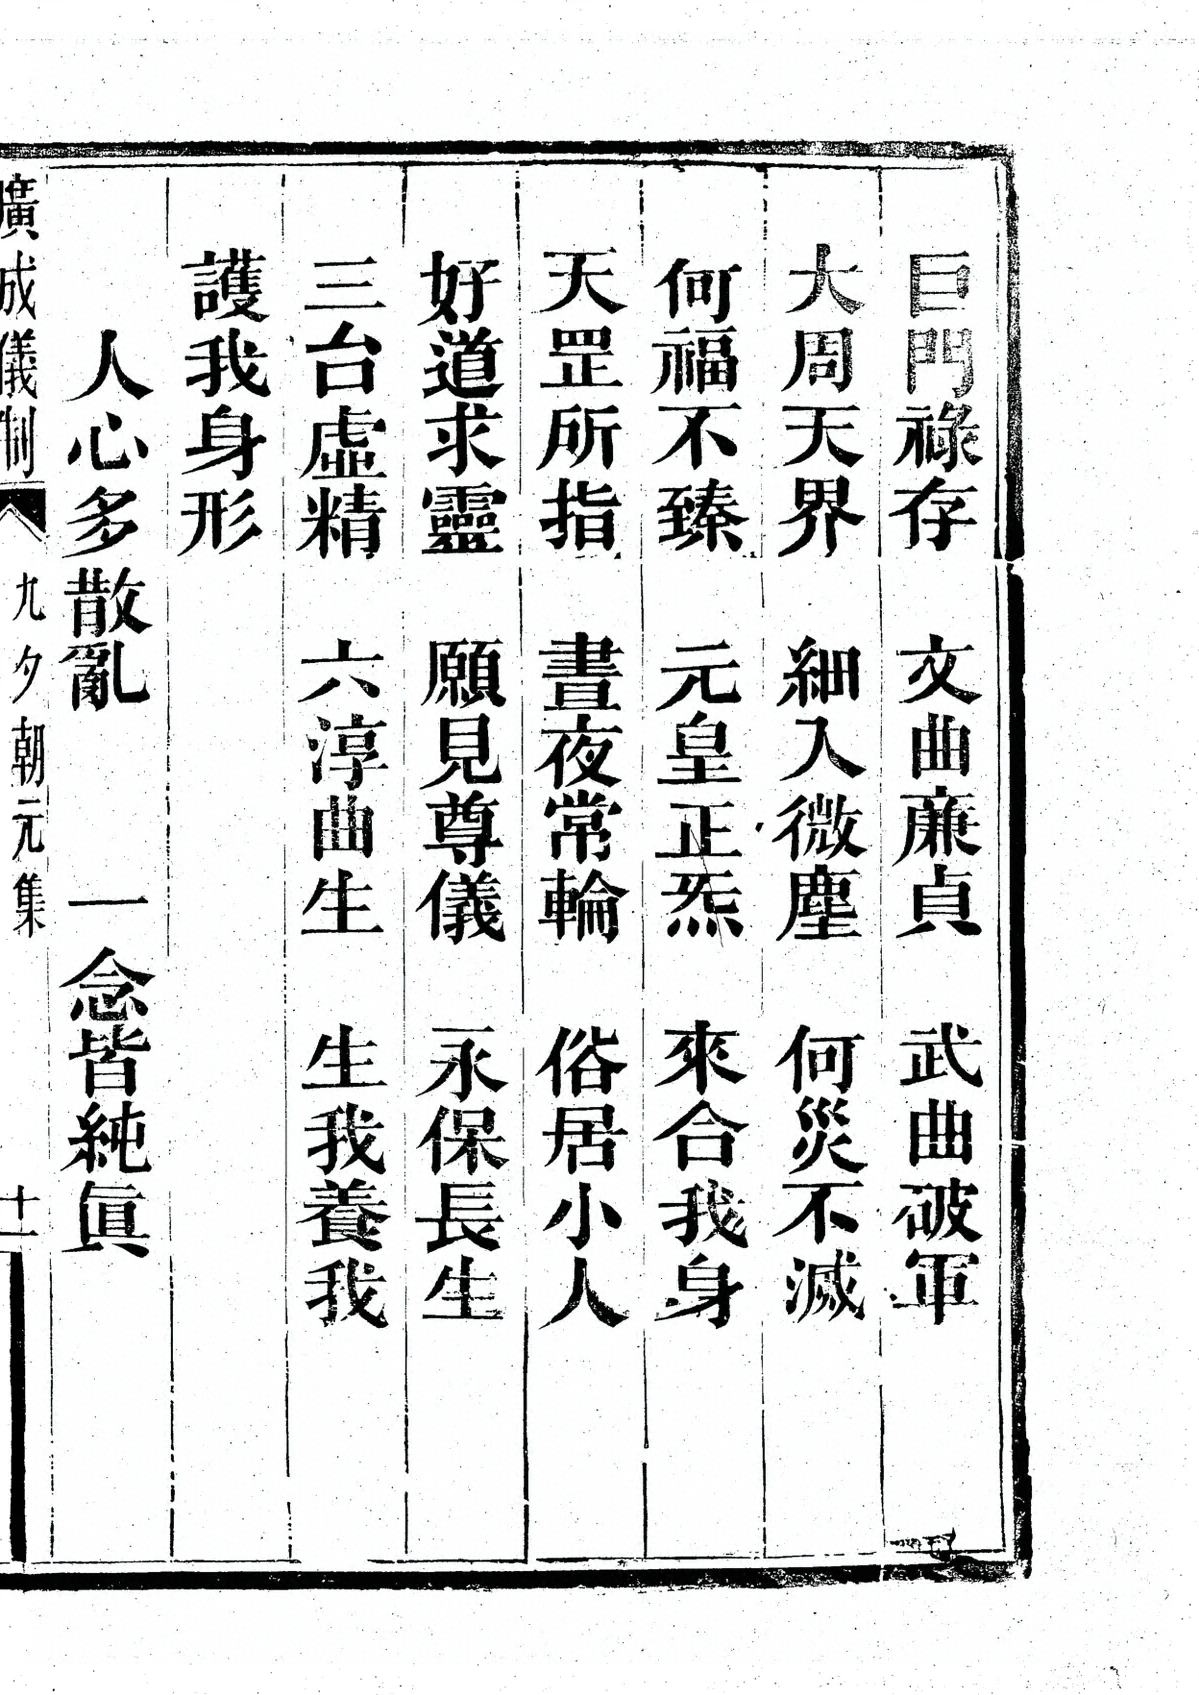 巨門祿存　文曲廉貞　武曲破軍
大周天界　細入微塵　何災不滅
何福不臻　元皇正炁　來合我身
天罡所指　晝夜常輪　俗居小人
好道求靈　願見尊儀　永保長生
三台虛精　六淳曲生　生我養我
護我身形
人心多散亂　一念皆純眞
廣成儀制　九夕朝元集　十一